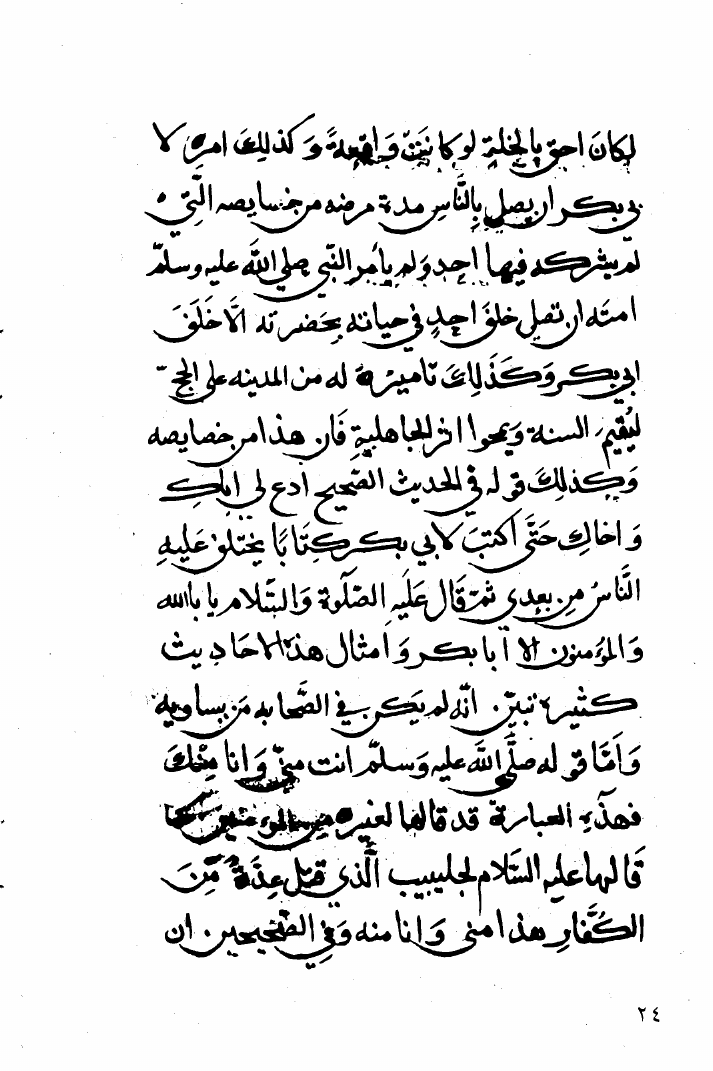 لكان احق بالخلة لو كانت واقعة وكذلك امره لا
بي بكر ان يصلي بالنَّاس مدة مرضه من خصايصه الَّتي
لم يشركه فيها احد ولم يأمر النَّبي صلي اللَّه عليه وسلَّم
امته ان تصلي خلف احد في حياته بحضرته الَّا خَلَفَ
ابي بكر وَكَذَلِكَ تاميره له من المدينه علي الحج
ليُقيمَ السنة ويمحوا اثر الجاهليةِ فَان هذا من خصايصه
وَكذلكَ قوله في الحديث الصَّحيح ادع لي اباكِ
وَاخاكِ حَتَّي اكتبَ لابي بكر كِتَابًا لا يختلف عَليهِ
النَّاسُ من بعدي ثمَّ قَال عَليهِ الصَّلوة وَالسَّلام يابا الله
وَالمؤمنون الا أبا بكر وَامثال هذه الاحَاديث
كثيرة تبيّن انَّه لم يكن في الصَّحابه مَن يساويه
وَامَّا قوله صلَّي اللَّه عليه وَسلَّم انت منّي وَانا منكَ
فهذهِ العبارة قد قالها لغيره من المؤمنين كما
قَالها عليه السَّلام لجليبيب الَّذي قتل عدَةً مِّنَ
الكُفَّارِ هذا مني وَانا منه وَفي الصَّحيحين ان
٢٤